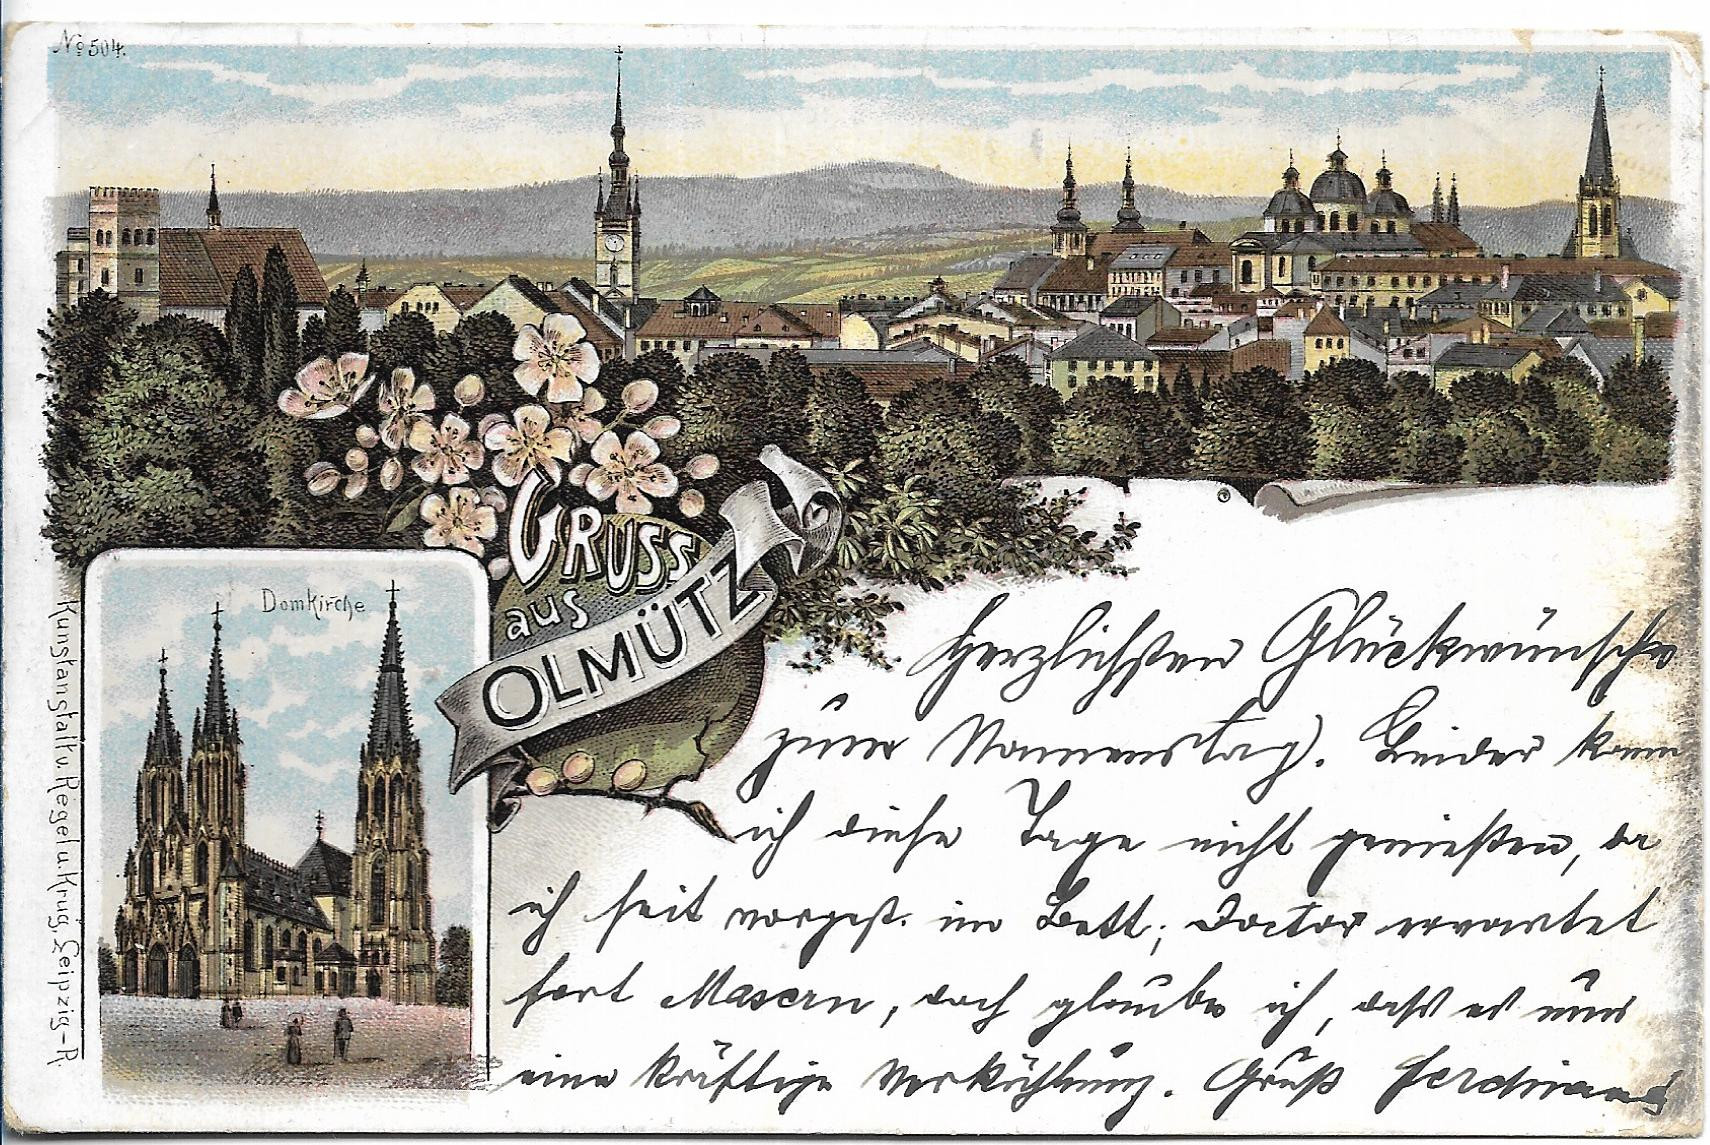 No 504.
GRUSS
aus
OLMÜTZ
Domkirche
Kunstanstalt v. Regel u. Krug, Leipzig-R.
Herzlichsten Glückwünsche
zum Namenstag. Leider kann
ich diese Tage nicht genießen, da
ich seit vorgest. im Bett; Doctor erwartet
fort Masern, doch glaube ich, dass es nur
eine kräftige Verkühlung. Gruß Ferdinand